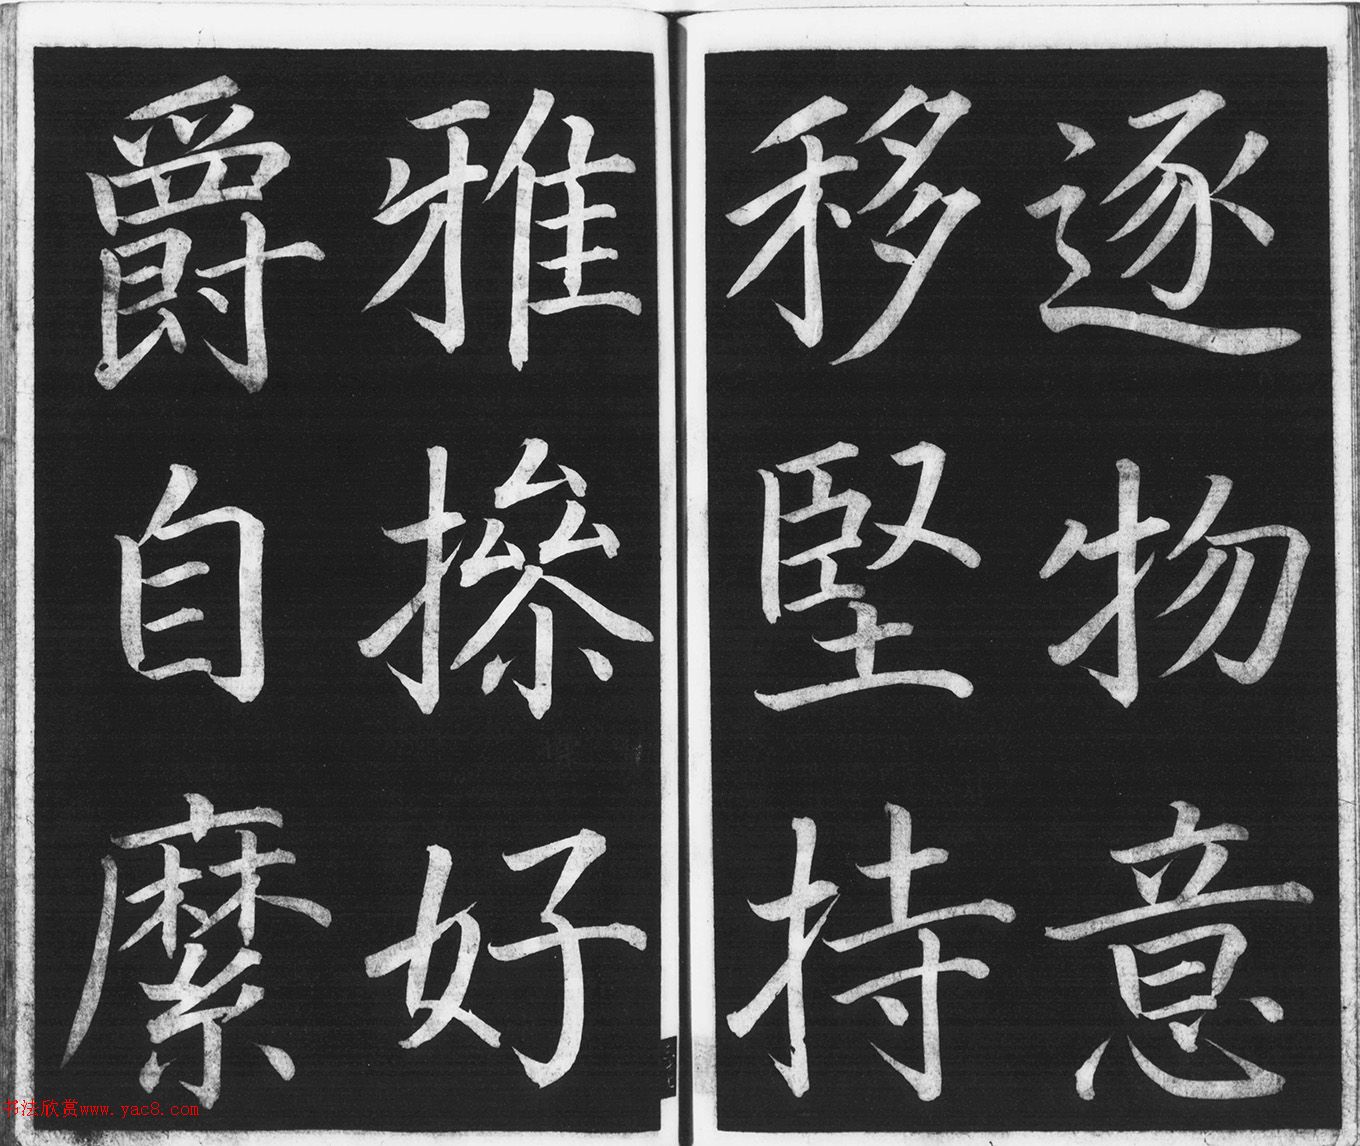 逐物意
移堅持
雅摻好
爵自縻
书法欣赏www.yac8.com